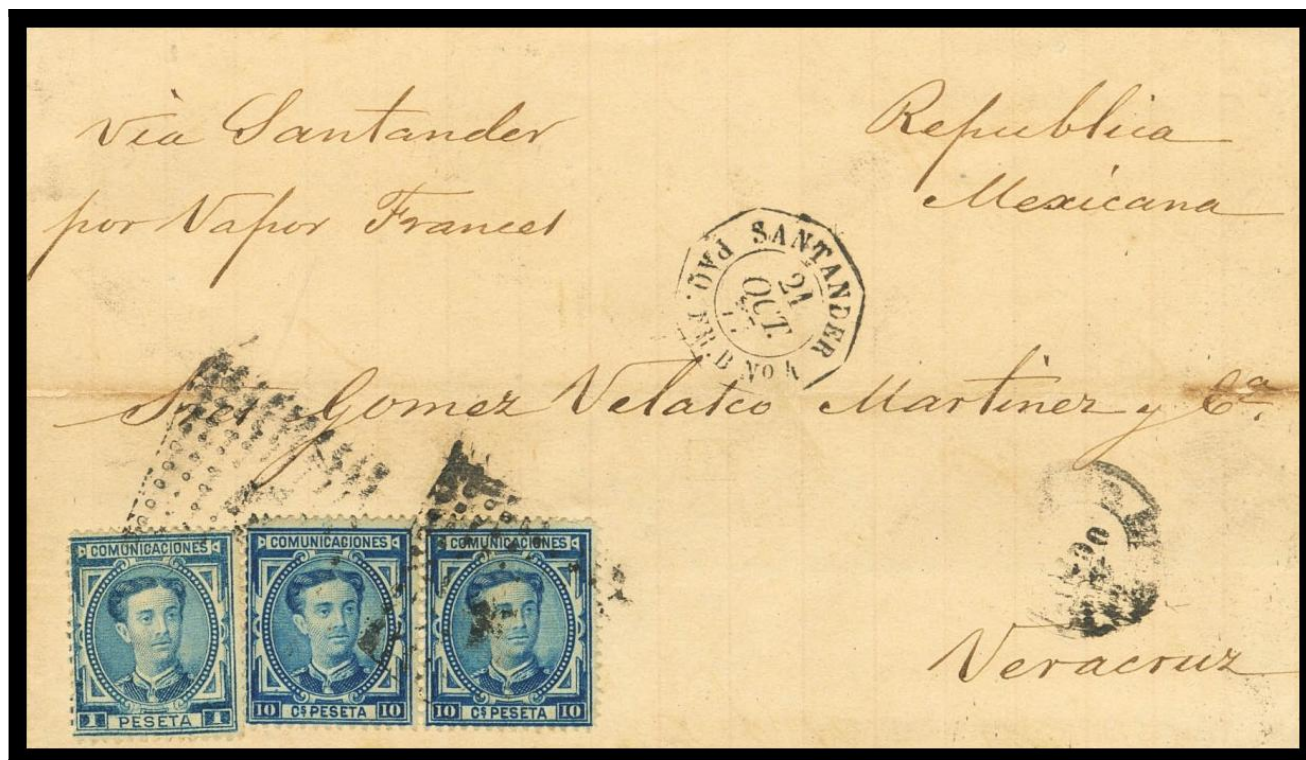 via Santander
por Vapor Frances
Republica
Mexicana
SANTANDER
21
OCT.
PAQ. FR. B No 4
Sres Gomez Velasco Martinez y Ca.
COMUNICACIONES
1 PESETA 1
COMUNICACIONES
10 Cs PESETA 10
COMUNICACIONES
10 Cs PESETA 10
Veracruz